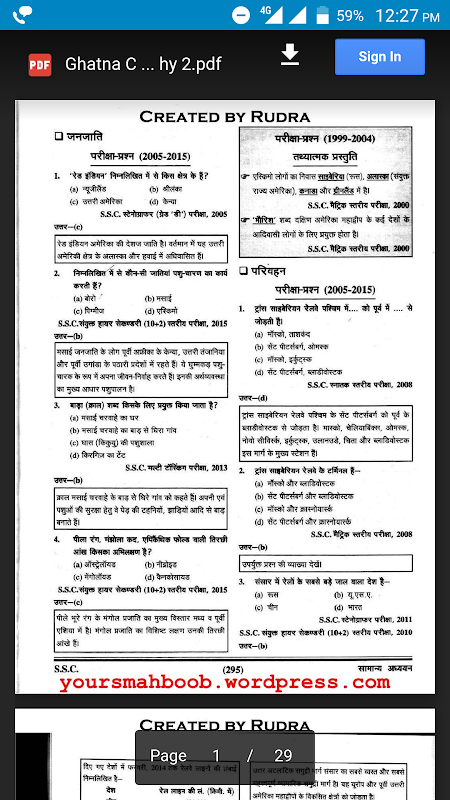 4G
59%
12:27 PM
PDF
Ghatna C ... hy 2.pdf
Sign In
CREATED BY RUDRA
❑ जनजाति
परीक्षा-प्रश्न (2005-2015)
1. 'रेड इंडियन' निम्नलिखित में से किस क्षेत्र के हैं?
(a) न्यूजीलैंड (b) श्रीलंका
(c) उत्तरी अमेरिका (d) केन्या
S.S.C. स्टेनोग्राफर (ग्रेड 'डी') परीक्षा, 2005
उत्तर—(c)
रेड इंडियन अमेरिका की देशज जाति है। वर्तमान में यह उत्तरी
अमेरिकी क्षेत्र के अलास्का और हवाई में अधिवासित हैं।
2. निम्नलिखित में से कौन-सी जातियां पशु-चारण का कार्य
करती हैं?
(a) बोरो (b) मसाई
(c) पिग्मीज (d) एस्किमो
S.S.C.संयुक्त हायर सेकण्डरी (10+2) स्तरीय परीक्षा, 2015
उत्तर—(b)
मसाई जनजाति के लोग पूर्वी अफ्रीका के केन्या, उत्तरी तंजानिया
और पूर्वी उगांडा के पठारी प्रदेशों में रहते हैं। ये घुमक्कड़ पशु-
चारक के रूप में अपना जीवन-निर्वाह करते हैं। इनकी अर्थव्यवस्था
का मुख्य आधार पशुपालन है।
3. बाड़ा (क्राल) शब्द किसके लिए प्रयुक्त किया जाता है?
(a) मसाई चरवाहे का घर
(b) मसाई चरवाहे का बाड़ से घिरा गांव
(c) घास (किकुयु) की पशुशाला
(d) किरगिज का टेंट
S.S.C. मल्टी टॉस्किंग परीक्षा, 2013
उत्तर—(b)
क्राल मसाई चरवाहे के बाड़ से घिरे गांव को कहते हैं। अपनी एवं
पशुओं की सुरक्षा हेतु वे पेड़ की टहनियों, झाड़ियों आदि से बाड़
बनाते हैं।
4. पीला रंग, मंझोला कद, एपिकैंथिक फोल्ड वाली तिरछी
आंख किसका अभिलक्षण है?
(a) ऑस्ट्रेलॉयड (b) नीग्रोइड
(c) मंगोलॉयड (d) कैनकोसायड
S.S.C.संयुक्त हायर सेकण्डरी (10+2) स्तरीय परीक्षा, 2015
उत्तर—(c)
पीले भूरे रंग के मंगोल प्रजाति का मुख्य विस्तार मध्य व पूर्वी
एशिया में है। मंगोल प्रजाति का विशिष्ट लक्षण उनकी तिरछी
आंखे हैं।
परीक्षा-प्रश्न (1999-2004)
तथ्यात्मक प्रस्तुति
☞ एस्किमो लोगों का निवास साइबेरिया (रूस), अलास्का (संयुक्त
राज्य अमेरिका), कनाडा और ग्रीनलैंड में है।
S.S.C. मैट्रिक स्तरीय परीक्षा, 2000
☞ 'मैरिश' शब्द दक्षिण अमेरिका महाद्वीप के कई देशों के
आदिवासी लोगों के लिए प्रयुक्त होता है।
S.S.C. मैट्रिक स्तरीय परीक्षा, 2000
❑ परिवहन
परीक्षा-प्रश्न (2005-2015)
1. ट्रांस साइबेरियन रेलवे पश्चिम में.... को पूर्व में .... से
जोड़ती है।
(a) मॉस्को, ताशकंद
(b) सेंट पीटर्सबर्ग, ओमस्क
(c) मॉस्को, इर्कुट्स्क
(d) सेंट पीटर्सबर्ग, ब्लाडीवोस्टक
S.S.C. स्नातक स्तरीय परीक्षा, 2008
उत्तर—(d)
ट्रांस साइबेरियन रेलवे पश्चिम के सेंट पीटर्सबर्ग को पूर्व के
ब्लाडीवोस्टक से जोड़ता है। मास्को, चेलियाबिंस्क, ओमस्क,
नोवो सीविर्स्क, इर्कुट्स्क, उलानउडे, चिता और ब्लाडीवोस्टक
इस मार्ग के मुख्य स्टेशन हैं।
2. ट्रांस साइबेरियन रेलवे के टर्मिनल हैं—
(a) मॉस्को और ब्लाडिवोस्टक
(b) सेंट पीटर्सबर्ग और ब्लाडीवोस्टक
(c) मॉस्को और क्रास्नोयार्स्क
(d) सेंट पीटर्सबर्ग और क्रास्नोयार्स्क
S.S.C.मैट्रिक स्तरीय परीक्षा, 2008
उत्तर—(b)
उपर्युक्त प्रश्न की व्याख्या देखें।
3. संसार में रेलों के सबसे बड़े जाल वाला देश है—
(a) रूस (b) यू.एस.ए.
(c) चीन (d) भारत
S.S.C. स्टेनोग्राफर परीक्षा, 2011
S.S.C. संयुक्त हायर सेकण्डरी (10+2) स्तरीय परीक्षा, 2010
उत्तर—(b)
S.S.C. (295) सामान्य अध्ययन
yoursmahboob.wordpress.com
CREATED BY RUDRA
Page 1 / 29
दिए गए देशों में
निम्नलिखित है—
देश रेल लाइन की लं. (किमी. में)
उत्तर अटलांटिक समुद्री मार्ग संसार का सबसे व्यस्त और सबसे
महत्वपूर्ण व्यापारिक समुद्री मार्ग है। यह यूरोप और पूर्वी उत्तरी
अमेरिका महाद्वीपों के विकसित क्षेत्रों को जोड़ता है।